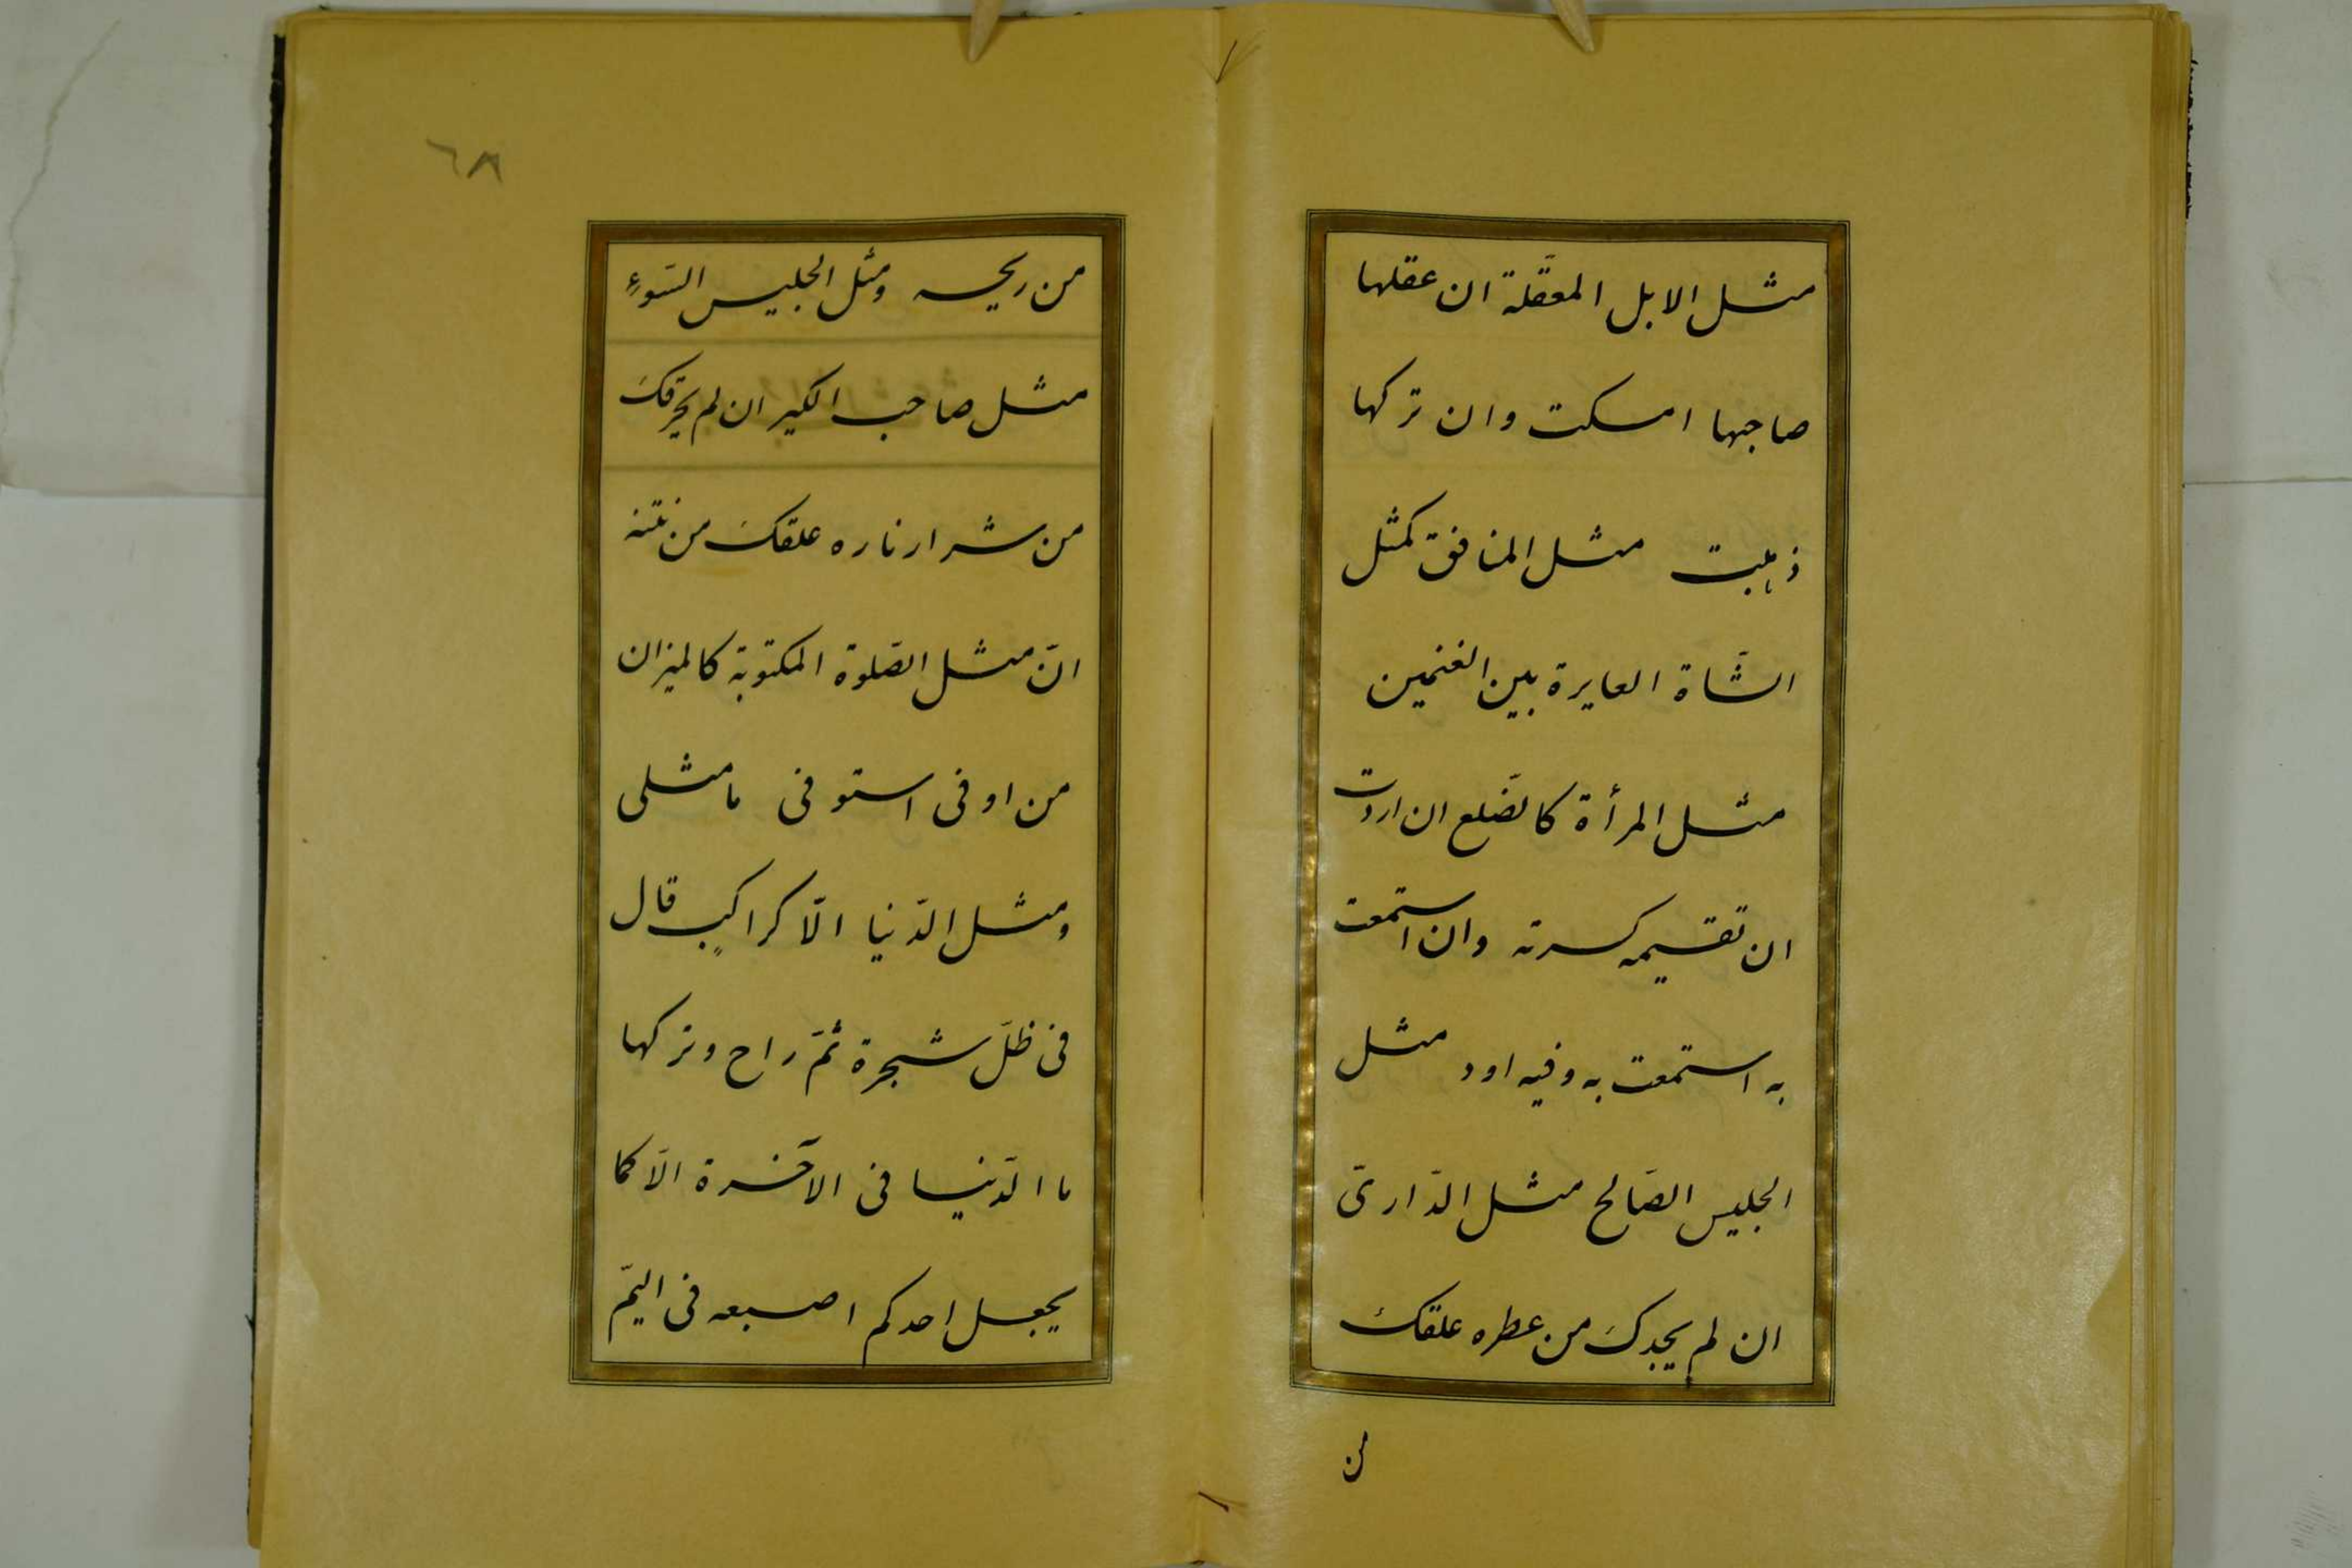 مثل الابل المعقّلة ان عقلها
صاحبها امسكت وان تركها
ذهبت مثل المنافق كمثل
الشّاة العايرة بين الغنمين
مثل المرأة كالضّلع ان اردت
ان تقيمه كسرته وان استمتعت
به استمتعت به وفيه اود مثل
الجليس الصّالح مثل الدّاريّ
ان لم يجدكَ من عطره علقكَ
من
٦٨
من ريحه ومثل الجليس السّوءِ
مثل صاحب الكير ان لم يحرقكَ
من شرار ناره علقكَ من نتنه
انّ مثل الصّلوة المكتوبة كالميزان
من اوفى استوفى ما مثلى
ومثل الدّنيا الّا كراكبٍ قال
فى ظلّ شجرة ثمّ راح وتركها
ما الدّنيا فى الآخرة الّا كما
يجعل احدكم اصبعه فى اليمّ